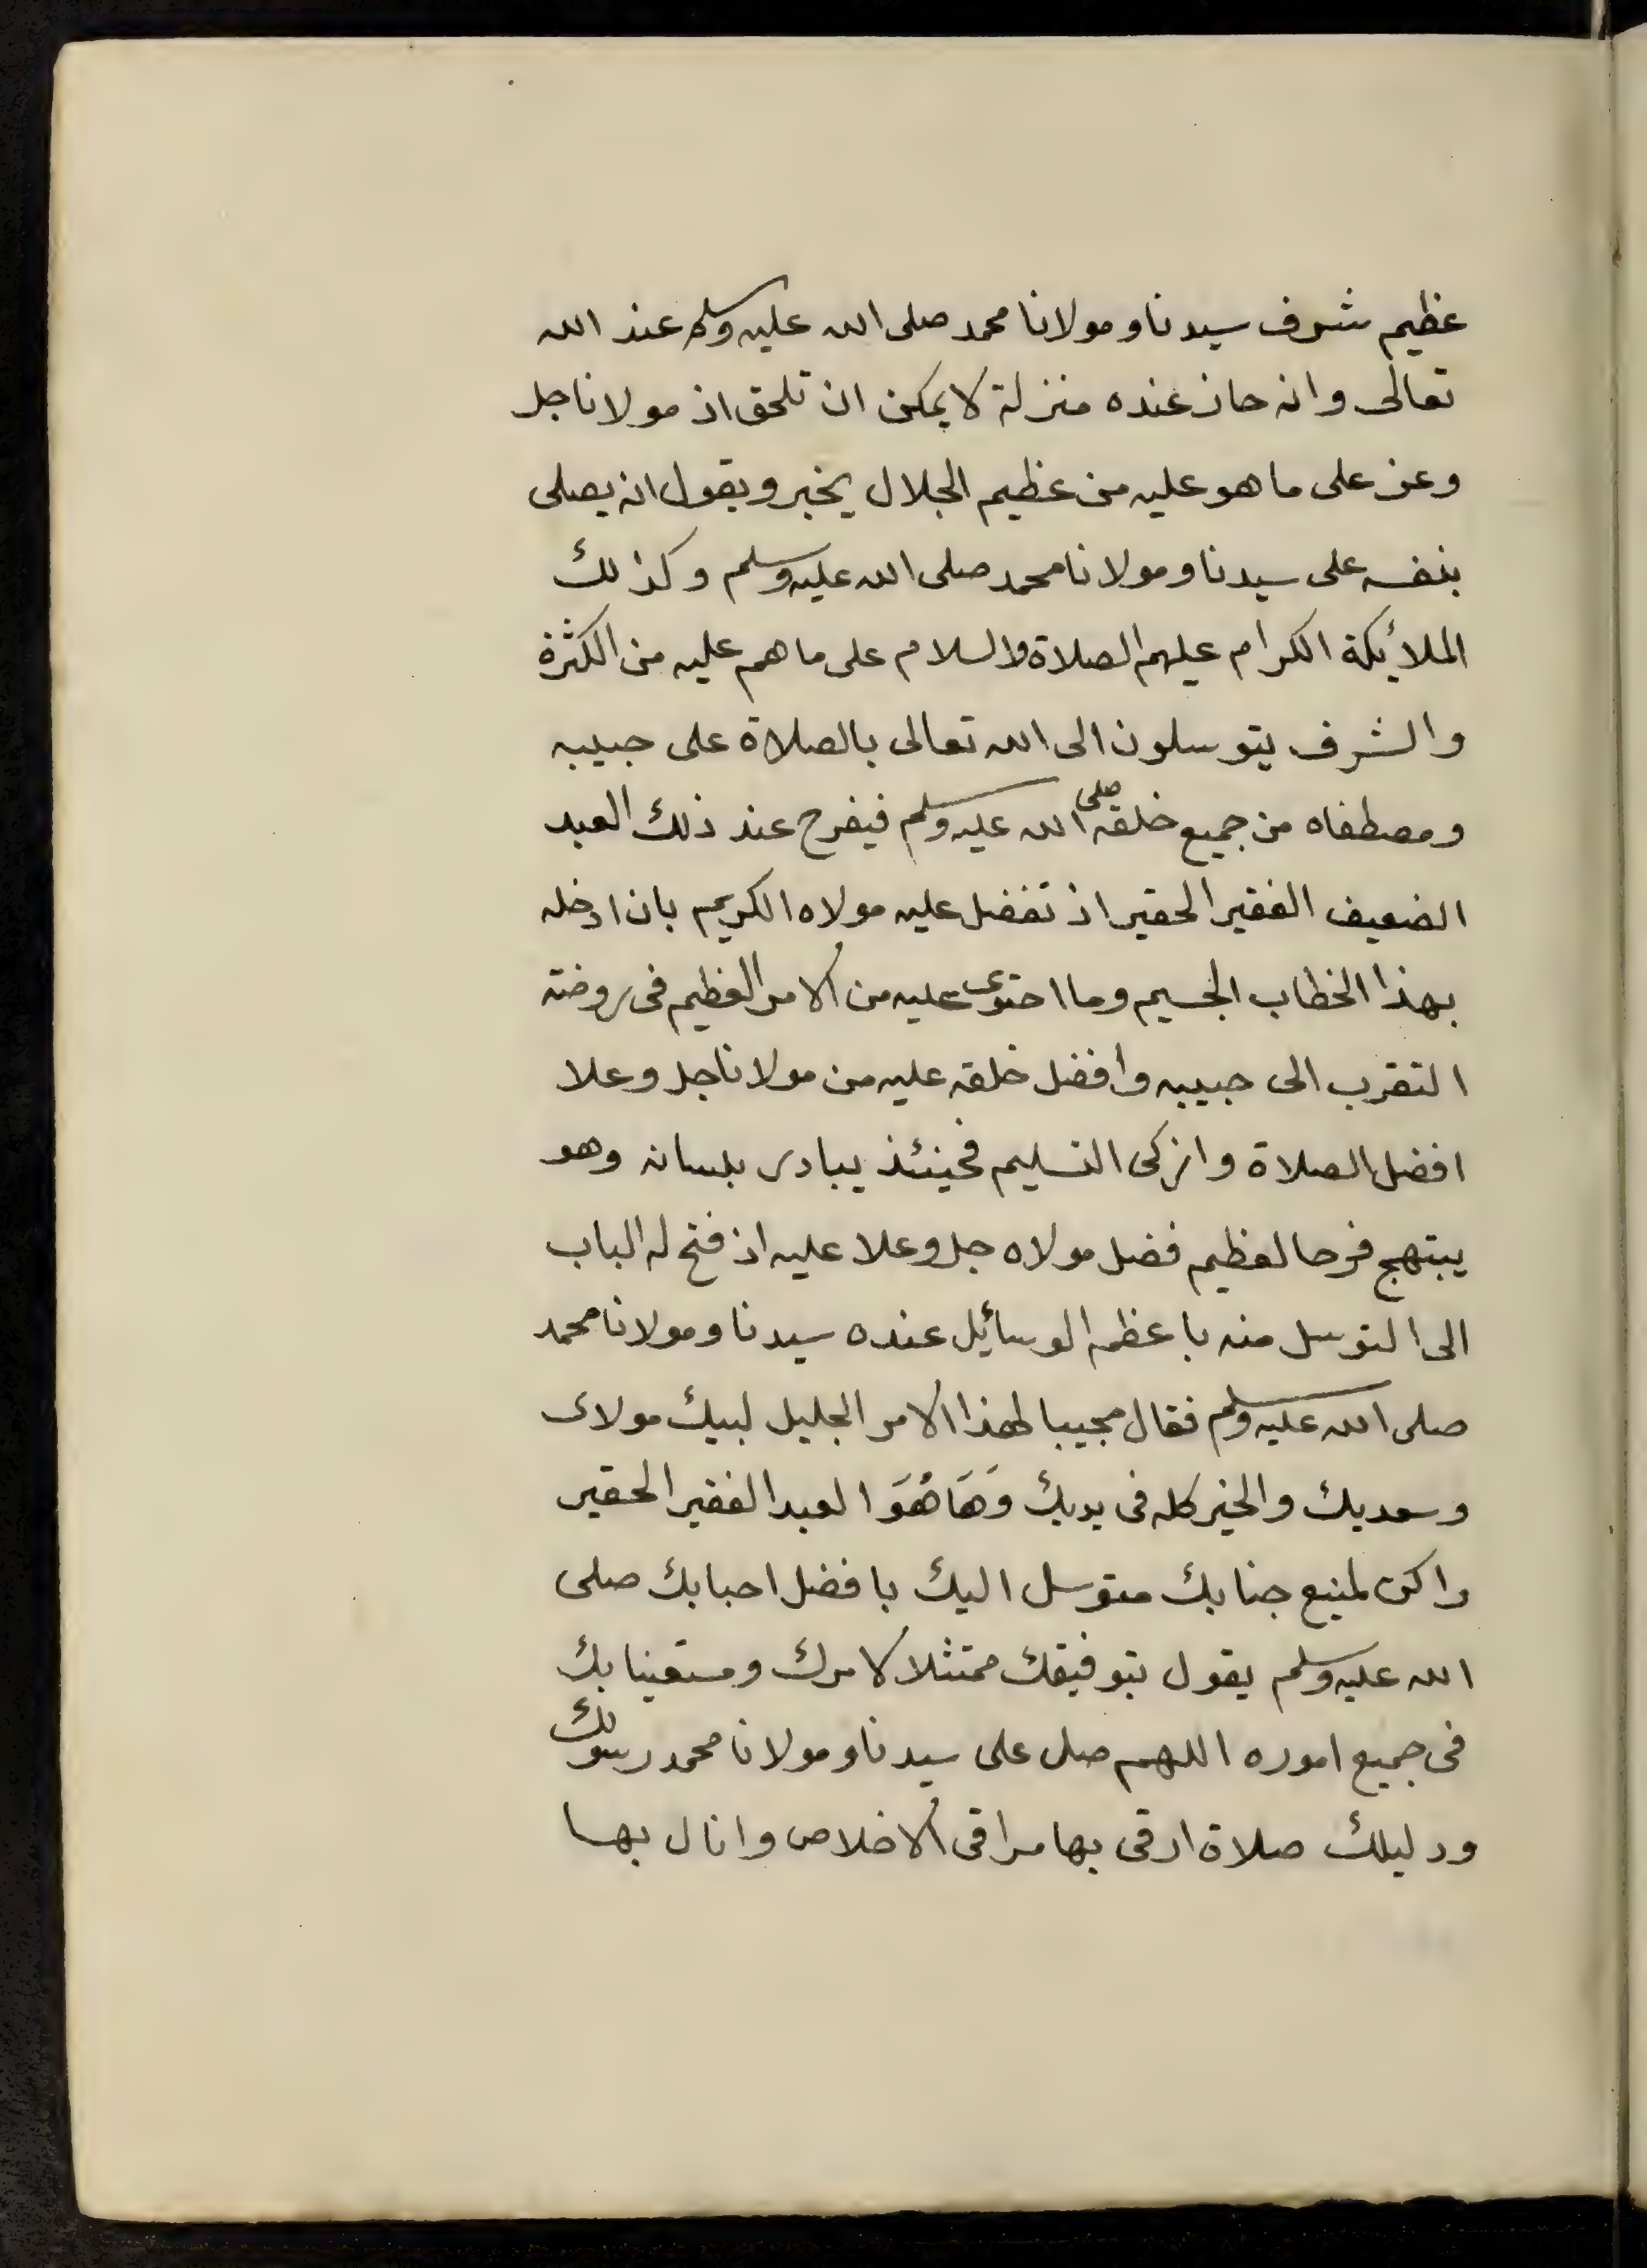 عظيم شرف سيدنا ومولانا محمد صلى الله عليه وسلم عند الله
تعالى وانه حاز عنده منزلة لا يمكن ان تلحق اذ مولانا جل
وعز على ما هو عليه من عظيم الجلال يخبر ويقول انه يصلى
بنفسه على سيدنا ومولانا محمد صلى الله عليه وسلم وكذلك
الملائكة الكرام عليهم الصلاة والسلام على ما هم عليه من الكثرة
والشرف يتوسلون الى الله تعالى بالصلاة على حبيبه
ومصطفاه من جميع خلقه صلى الله عليه وسلم فيفرح عند ذلك العبد
الضعيف الفقير الحقير اذ تفضل عليه مولاه الكريم بان ادخله
بهذا الخطاب الجسيم وما احتوى عليه من الامر العظيم فى روضة
التقرب الى حبيبه وأفضل خلقه عليه من مولانا جل وعلا
افضل الصلاة وازكى التسليم فحينئذ يبادر بلسانه وهو
يبتهج فرحا لعظيم فضل مولاه جل وعلا عليه اذ فتح له الباب
الى التوسل منه باعظم الوسائل عنده سيدنا ومولانا محمد
صلى الله عليه وسلم فقال مجيبا لهذا الامر الجليل لبيك مولاى
وسعديك والخير كله فى يديك وَهَا هُوَ العبد الفقير الحقير
راكن لمنيع جنابك متوسل اليك بافضل احبابك صلى
الله عليه وسلم يقول بتوفيقك ممتثلا لامرك ومستعينا بك
فى جميع اموره اللهم صل على سيدنا ومولانا محمد رسولك
ودليلك صلاة ارقى بها مراقى الاخلاص وانال بها